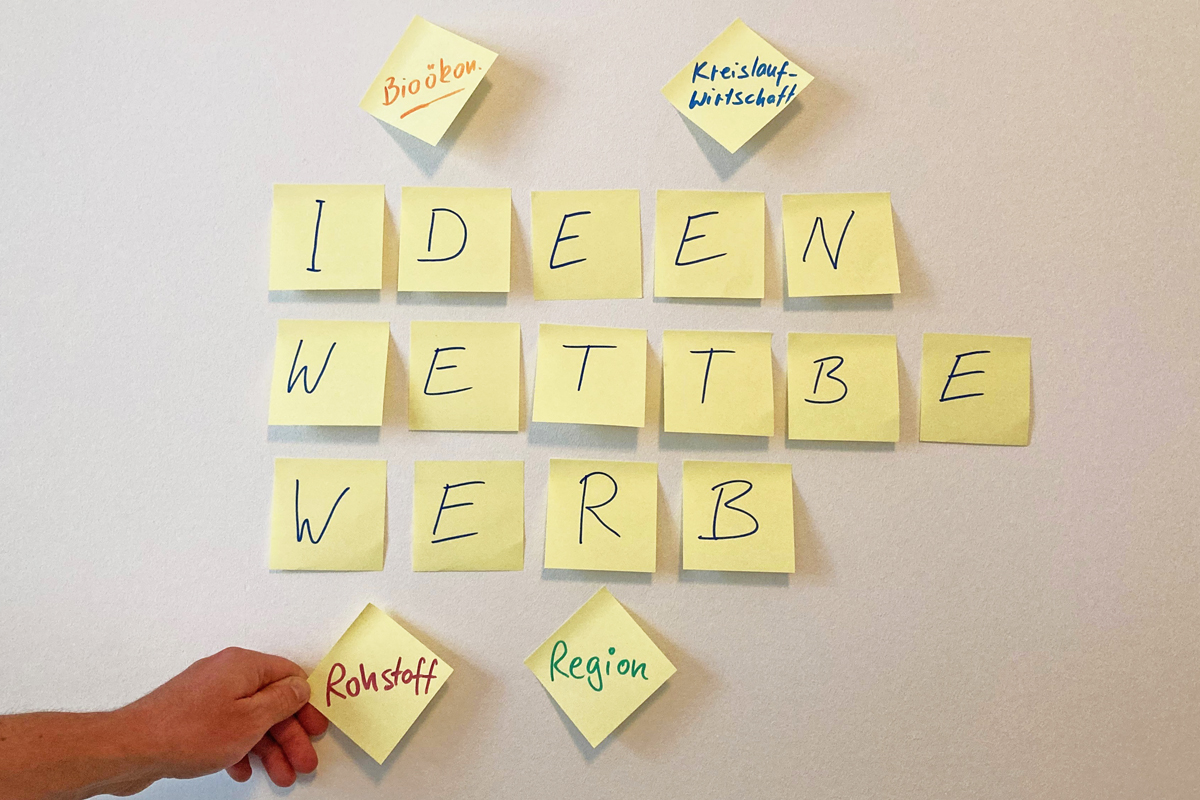 Bioökon.
Kreislauf-
wirtschaft
IDEEN
WETTBE
WERB
Rohstoff
Region